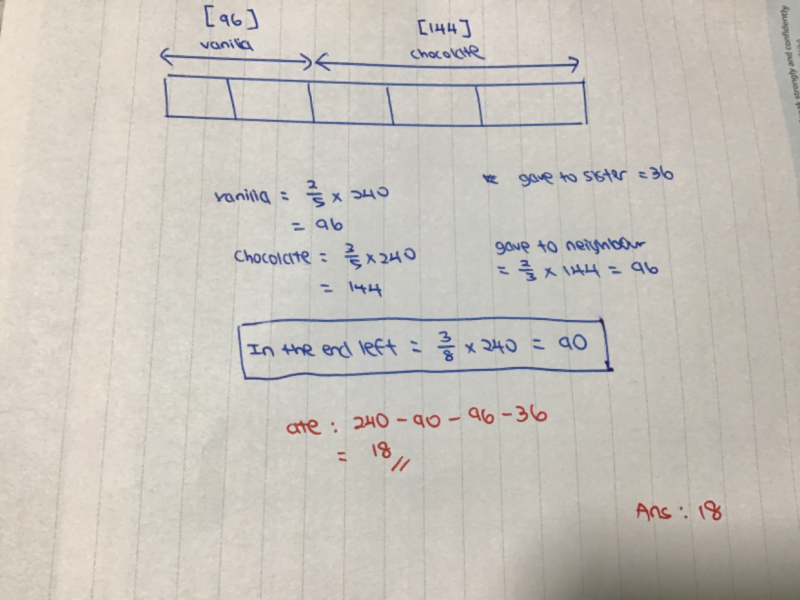 [96]
vanilla
[144]
chocolate
vanilla = 2/5 × 240
= 96
gave to sister = 36
chocolate = 3/5 × 240
= 144
gave to neighbour
= 2/3 × 144 = 96
In the end left = 3/8 × 240 = 90
ate : 240 - 90 - 96 - 36
= 18 //
Ans : 18
ongly and confidently